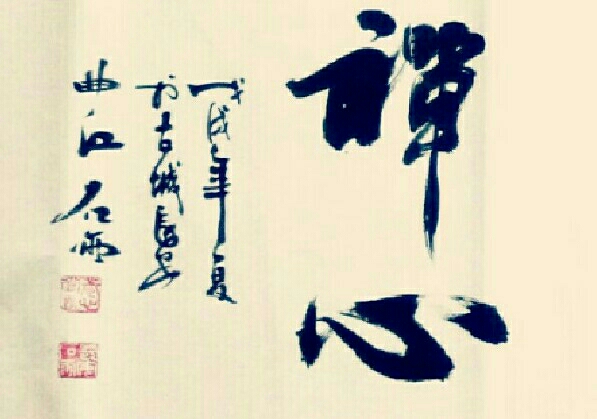 禪心
戊戌年夏
於古城長安
曲江石雨